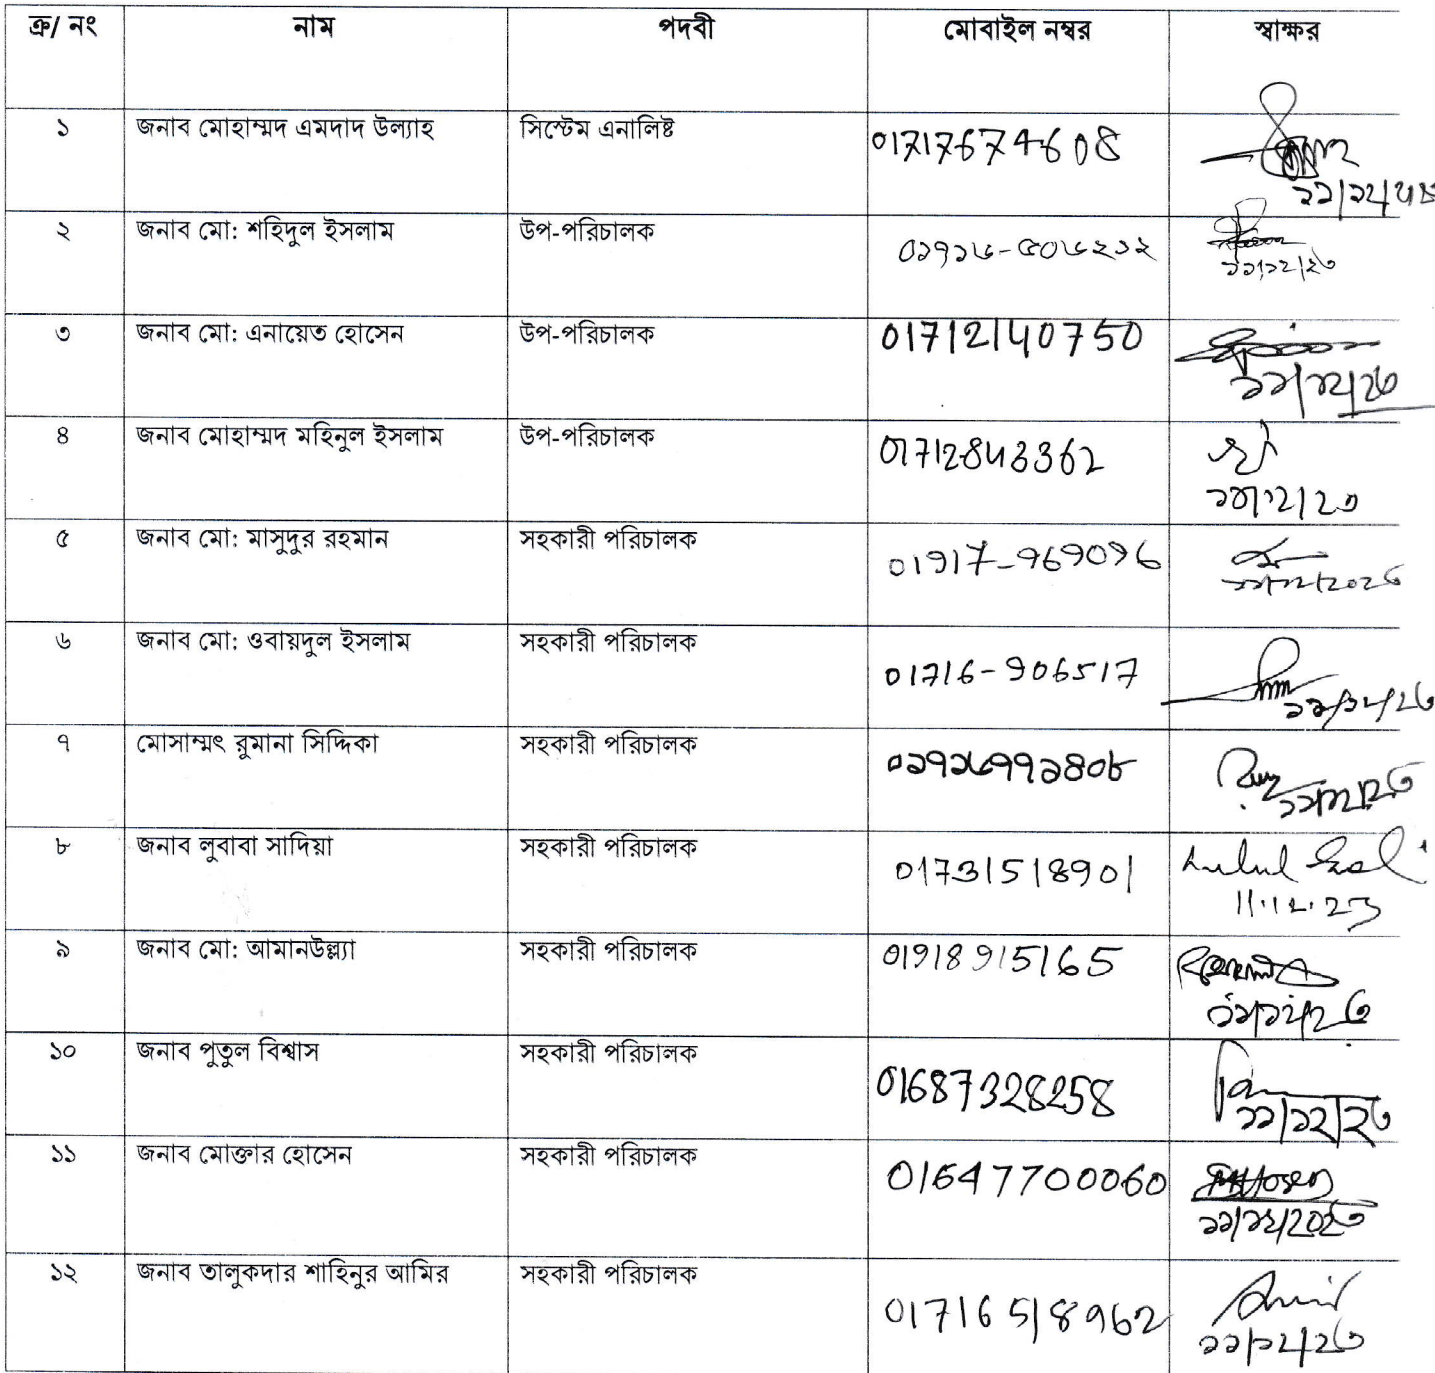 ক্র/ নং নাম পদবী মোবাইল নম্বর স্বাক্ষর
১ জনাব মোহাম্মদ এমদাদ উল্যাহ সিস্টেম এনালিষ্ট 01717674608
২ জনাব মো: শহিদুল ইসলাম উপ-পরিচালক ০১৭১৬-৫০৬২১২
১১/১২/২৩
৩ জনাব মো: এনায়েত হোসেন উপ-পরিচালক 01712140750
১১/১২/২৩
৪ জনাব মোহাম্মদ মহিনুল ইসলাম উপ-পরিচালক 01712843362
৫ জনাব মো: মাসুদুর রহমান সহকারী পরিচালক
৬ জনাব মো: ওবায়দুল ইসলাম সহকারী পরিচালক 01716-906517
১১/১২/২৩
৭ মোসাম্মৎ রুমানা সিদ্দিকা সহকারী পরিচালক ০১৭১৬৭৭১৪০৮
৮ জনাব লুবাবা সাদিয়া সহকারী পরিচালক 01731518901
11.12.23
৯ জনাব মো: আমানউল্ল্যা সহকারী পরিচালক 01918915165
১০ জনাব পুতুল বিশ্বাস সহকারী পরিচালক 01687328258
১১/১২/২৩
১১ জনাব মোক্তার হোসেন সহকারী পরিচালক 01647700060
১১/১২/২০২৩
১২ জনাব তালুকদার শাহিনুর আমির সহকারী পরিচালক 01716518962
১১/১২/২৩